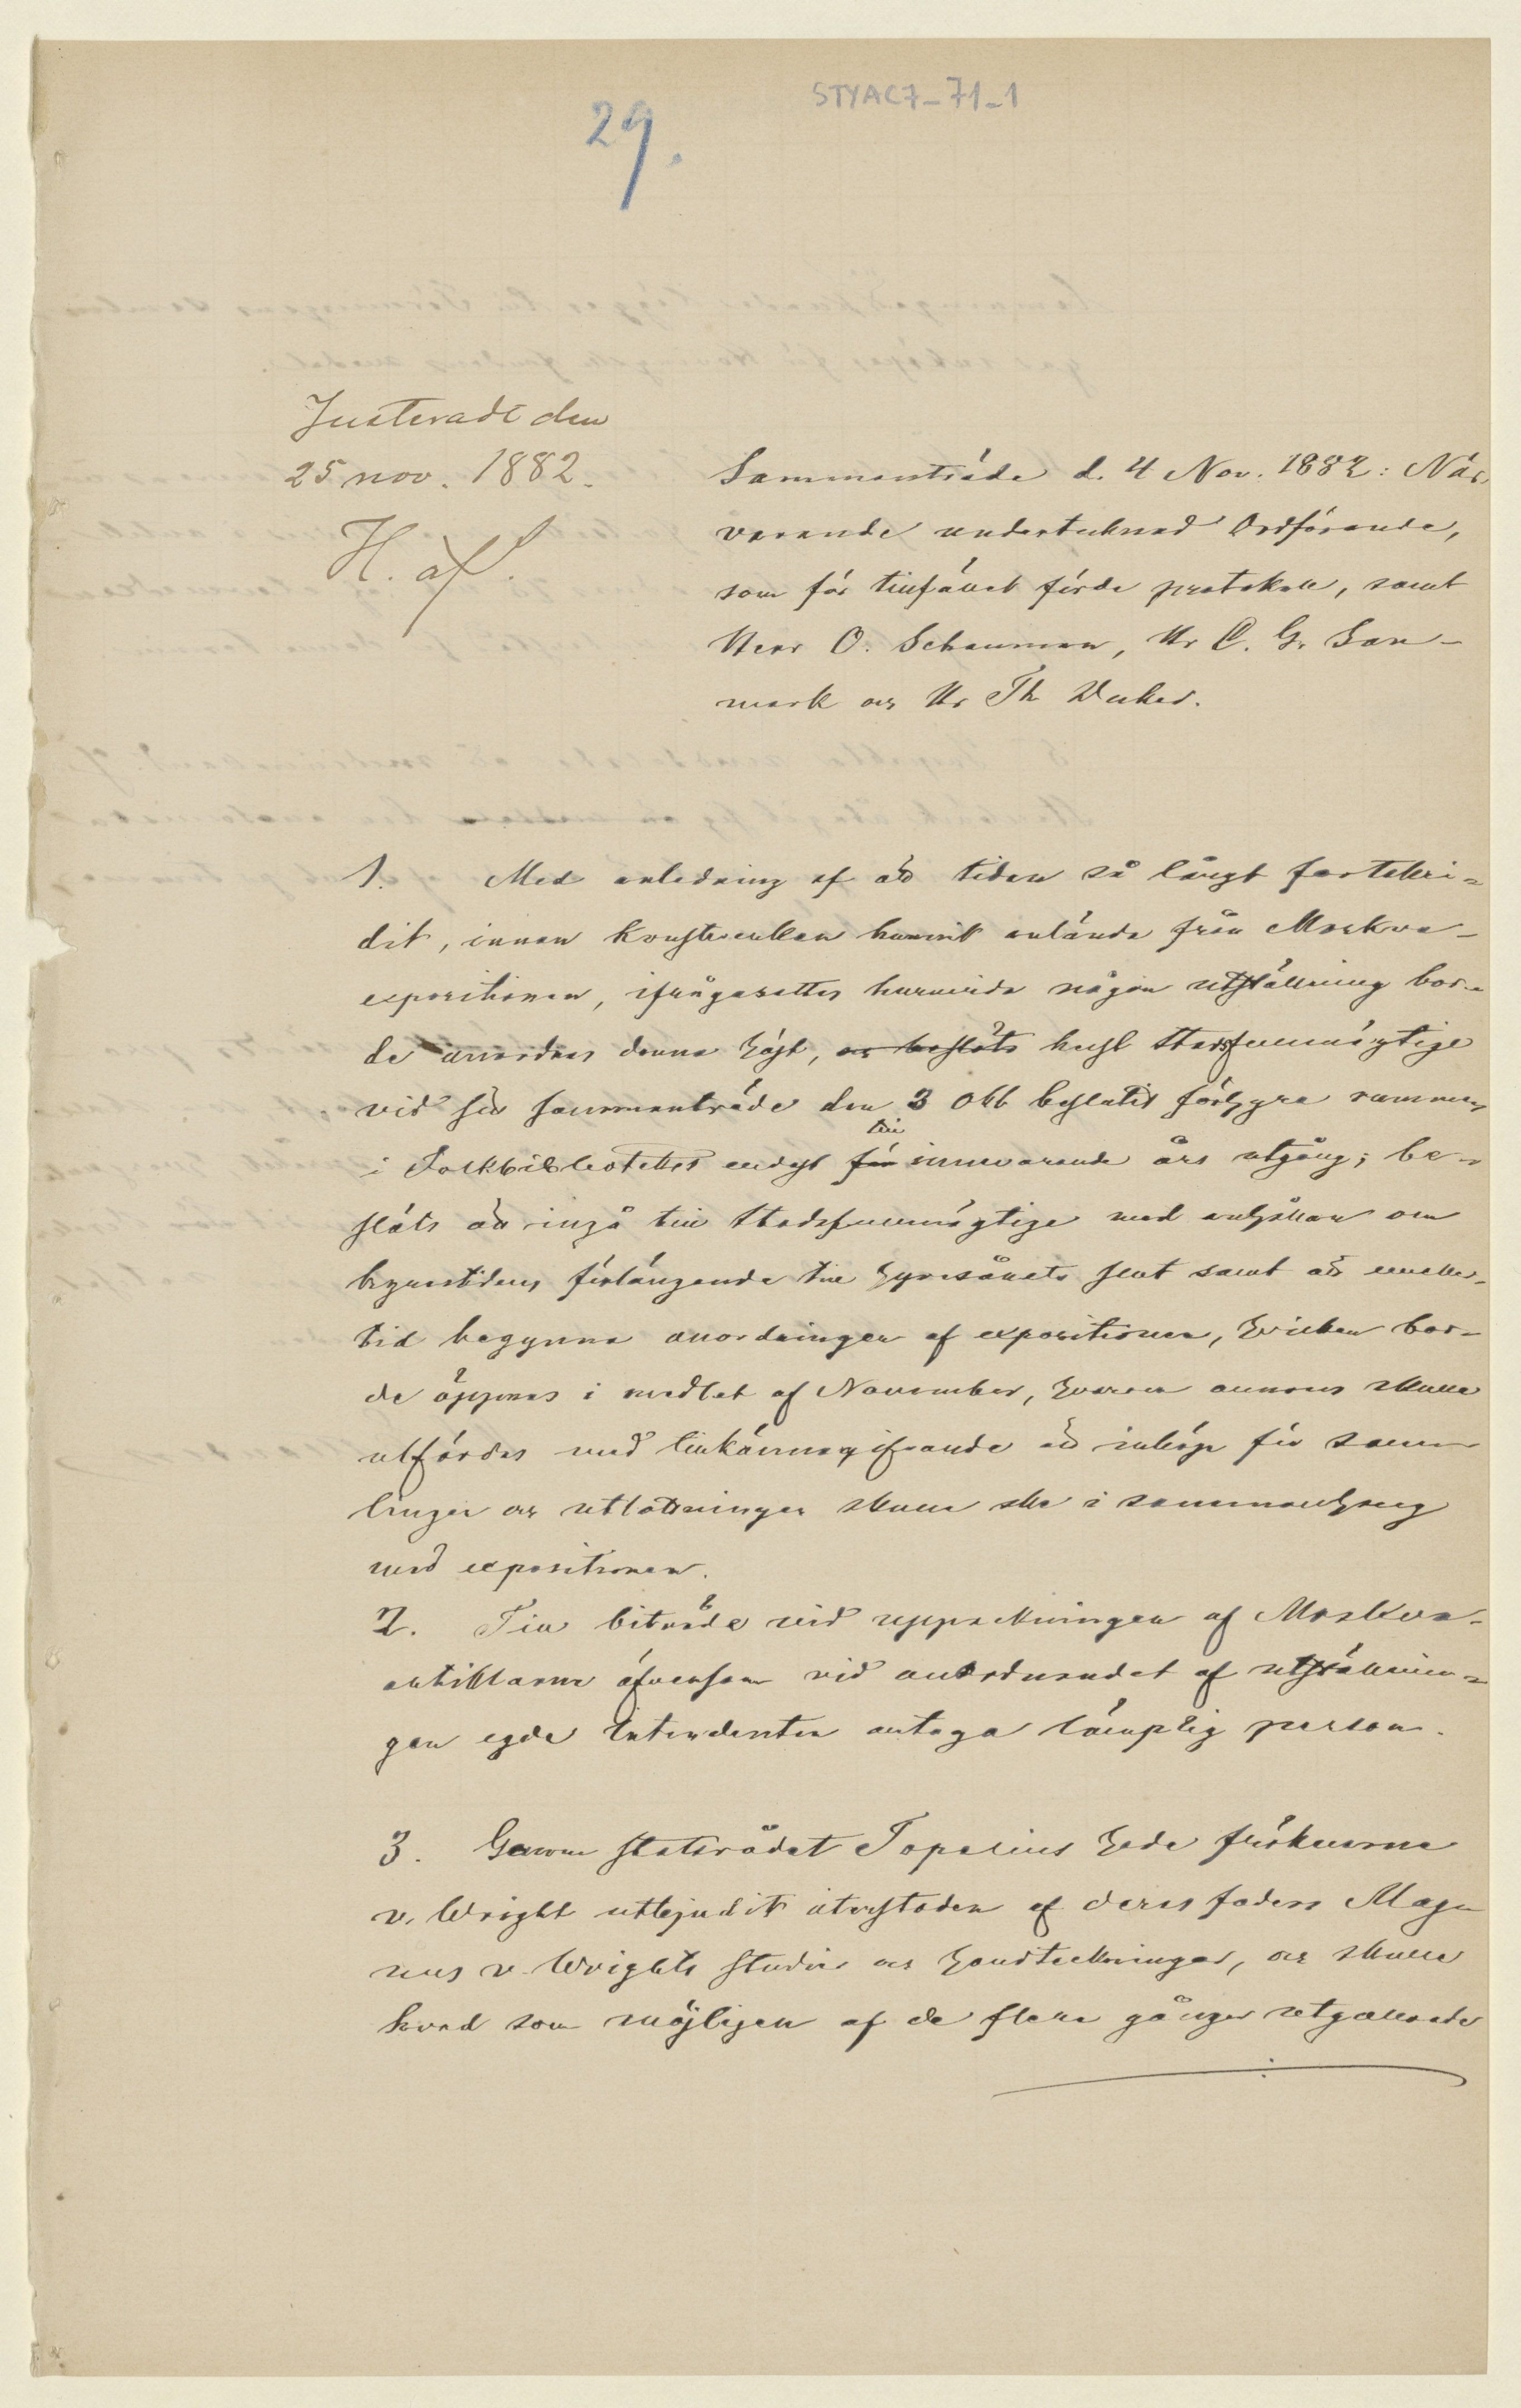 STYAC7-71-1
29.
Justeradt den
25 nov. 1882.
H. af.
Sammanträde d. 4 Nov. 1882: När-
varande undertecknad Ordförande,
som för tillfället förde protokoll, samt
Herr O. Schauman, Hr C. G. San-
mark och Hr Th Decker.
1. Med anledning af att tiden så långt fortskri-
dit, innan konstverken hunnit anlända från Moskva-
expositionen, ifrågasattes huruvida någon utställning bor-
de anordnas denna höst, och beslöts helst Stadsfullmägtige
vid sitt sammanträde den 3 Okt beslutit förhyra rummen
i Folkbibliotekets endast för till innevarande års utgång; be-
slöts att ingå till Stadsfullmägtige med anhållan om
hyrestidens förlängande till hyresårets slut samt att emeller-
tid begynna anordningen af expositionen, hvilken bor-
de öppnas i medlet af November, hvarom annons skulle
utfärdas med tillkännagifvande att inköp för sam-
lingen och utlottningen skulle ske i sammanhang
med expositionen.
2. Till biträde vid uppackningen af Moskva-
artiklarne äfvensom vid anordnandet af utställnin-
gen egde Intendenten antaga lämplig person.
3. Genom statsrådet Topelius hade fröknarna
v. Wright utbjudit återstoden af deras faders Mag-
nus v. Wrights studier och handteckningar, och skulle
hvad som möjligen af de flere gånger utgallrade